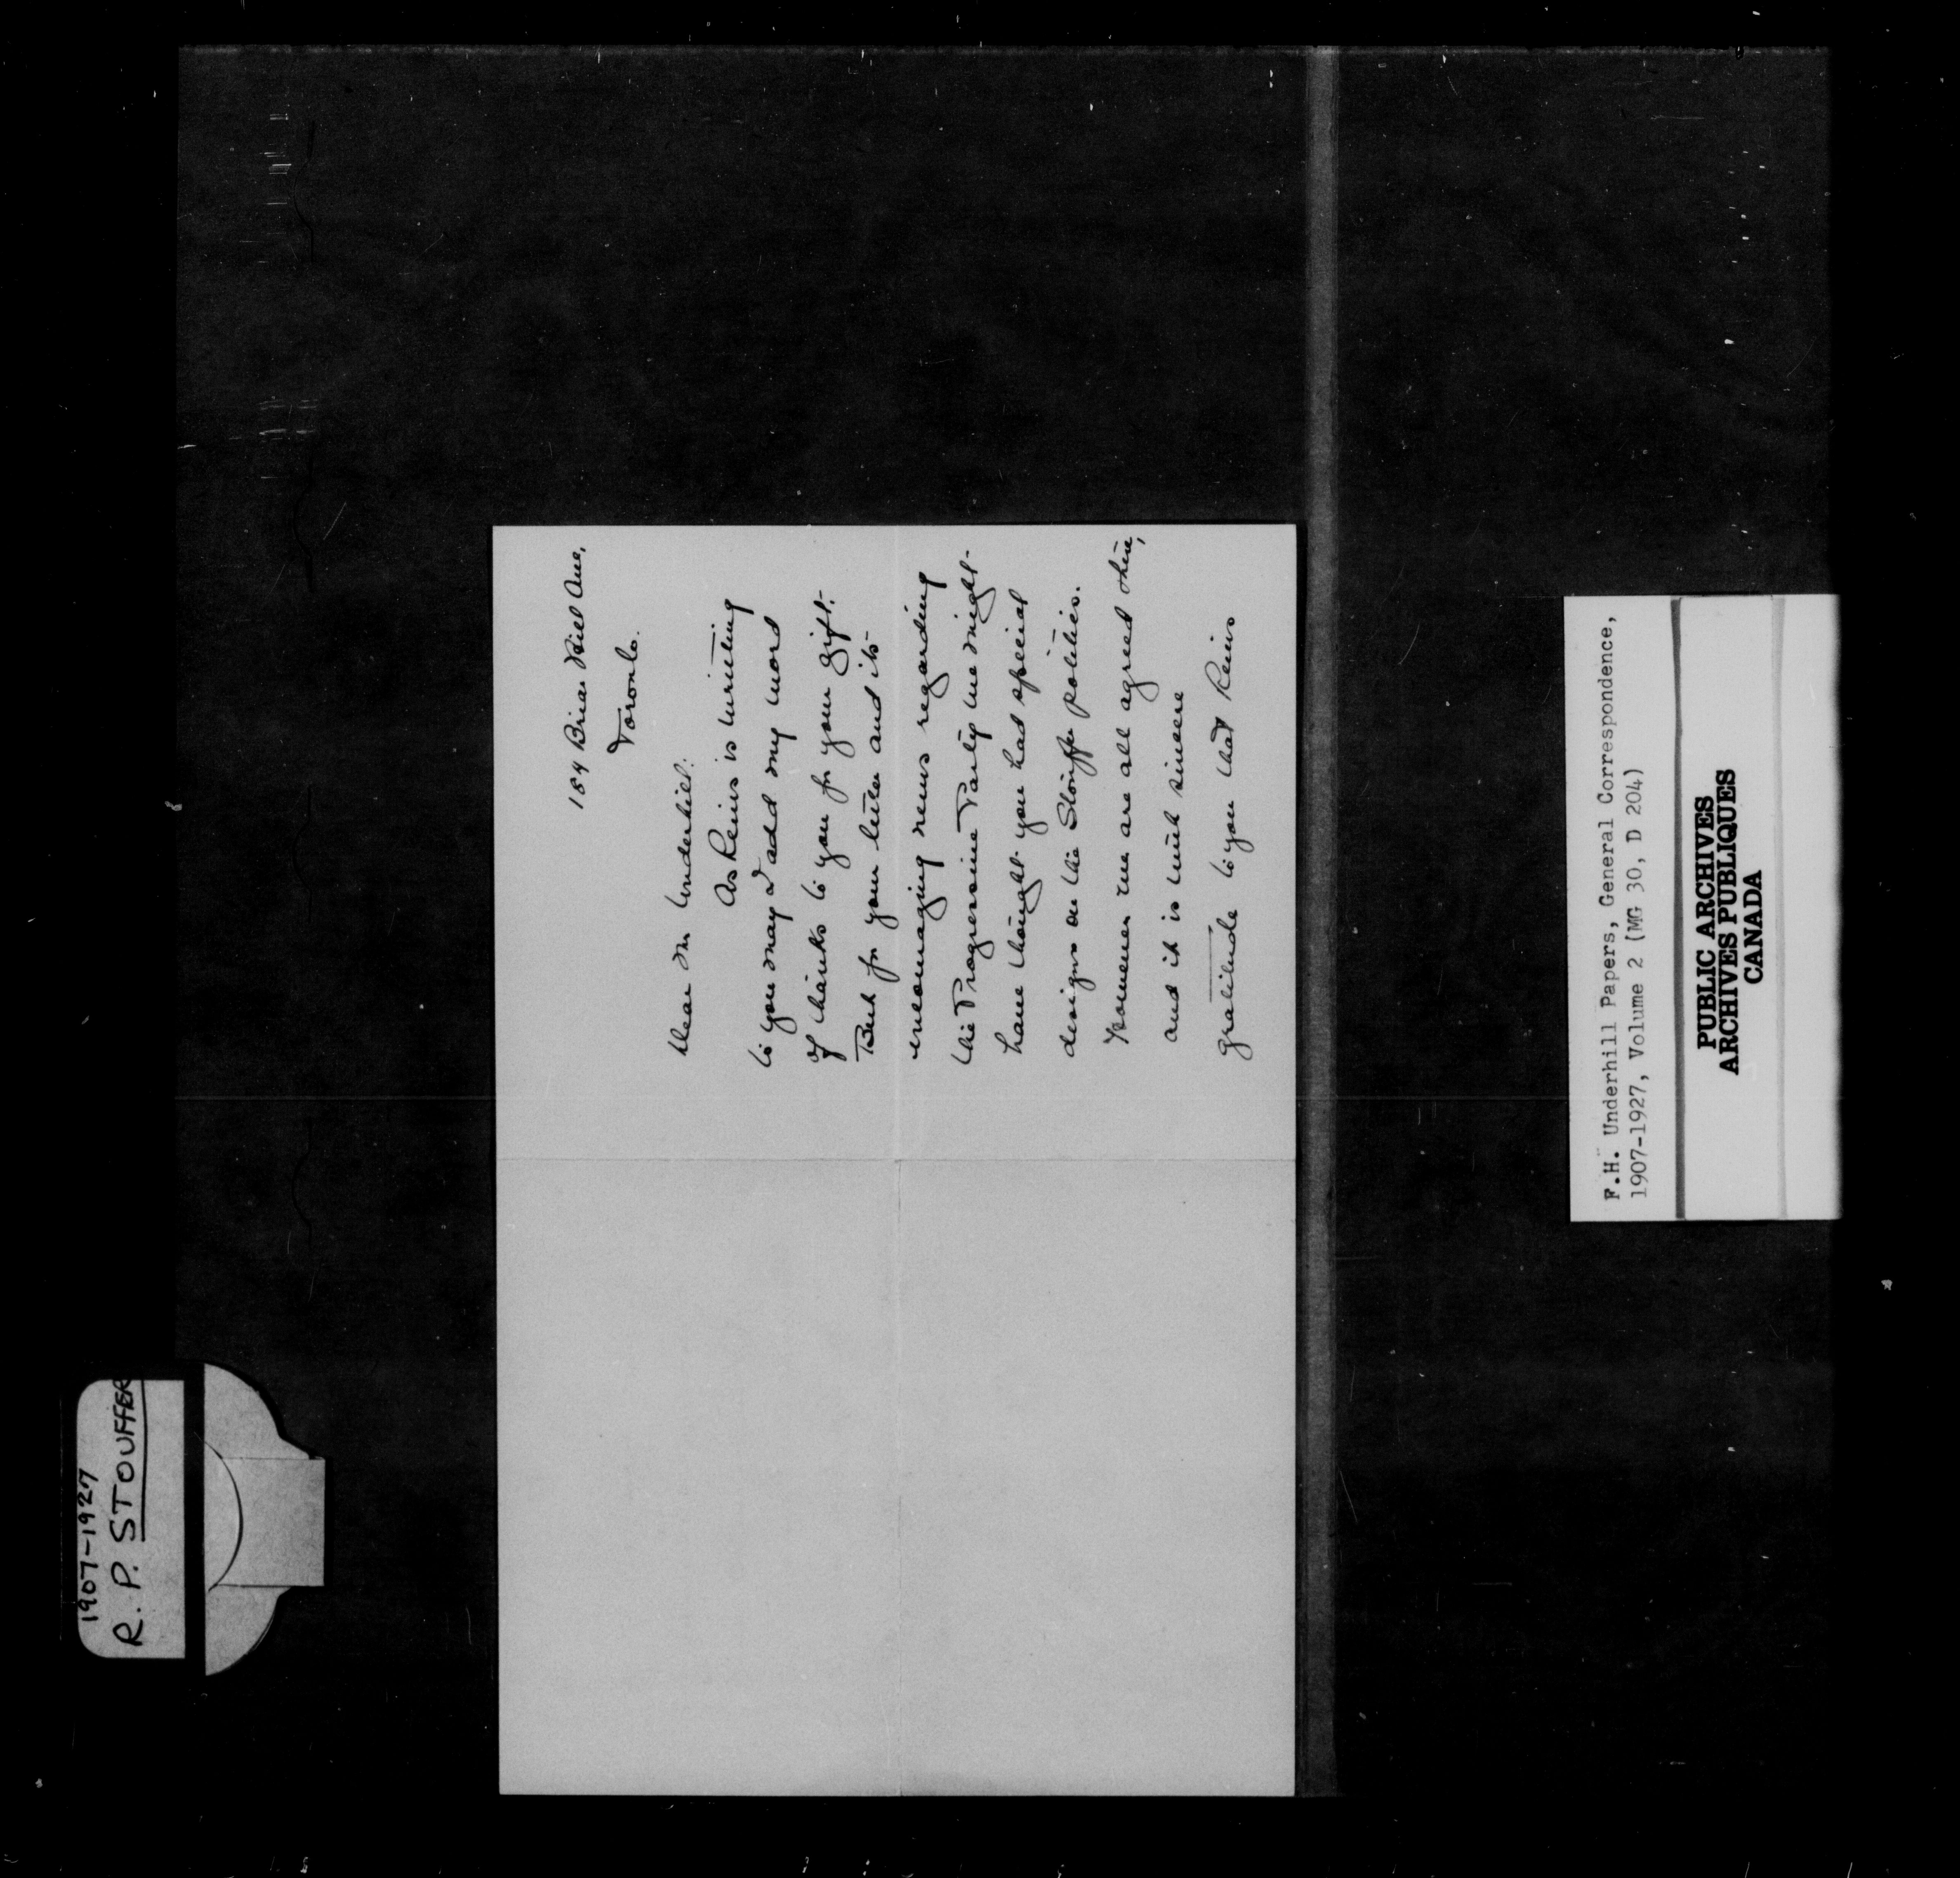 184 Briar Hill Ave,
Toronto.
Dear Mr Underhill:
As Reiis is writing
to you may I add my word
of thanks to you for your gift.
But for your letter and its
encouraging news regarding
the Progressive Party we might
have thought you had special
designs on the Stouffer politics.
However we are all agreed there,
and it is with sincere
gratitude to you that Reiis
F.H. Underhill Papers, General Correspondence,
1907-1927, Volume 2 (MG 30, D 204)
PUBLIC ARCHIVES
ARCHIVES PUBLIQUES
CANADA
1907-1927
R. P. STOUFFER